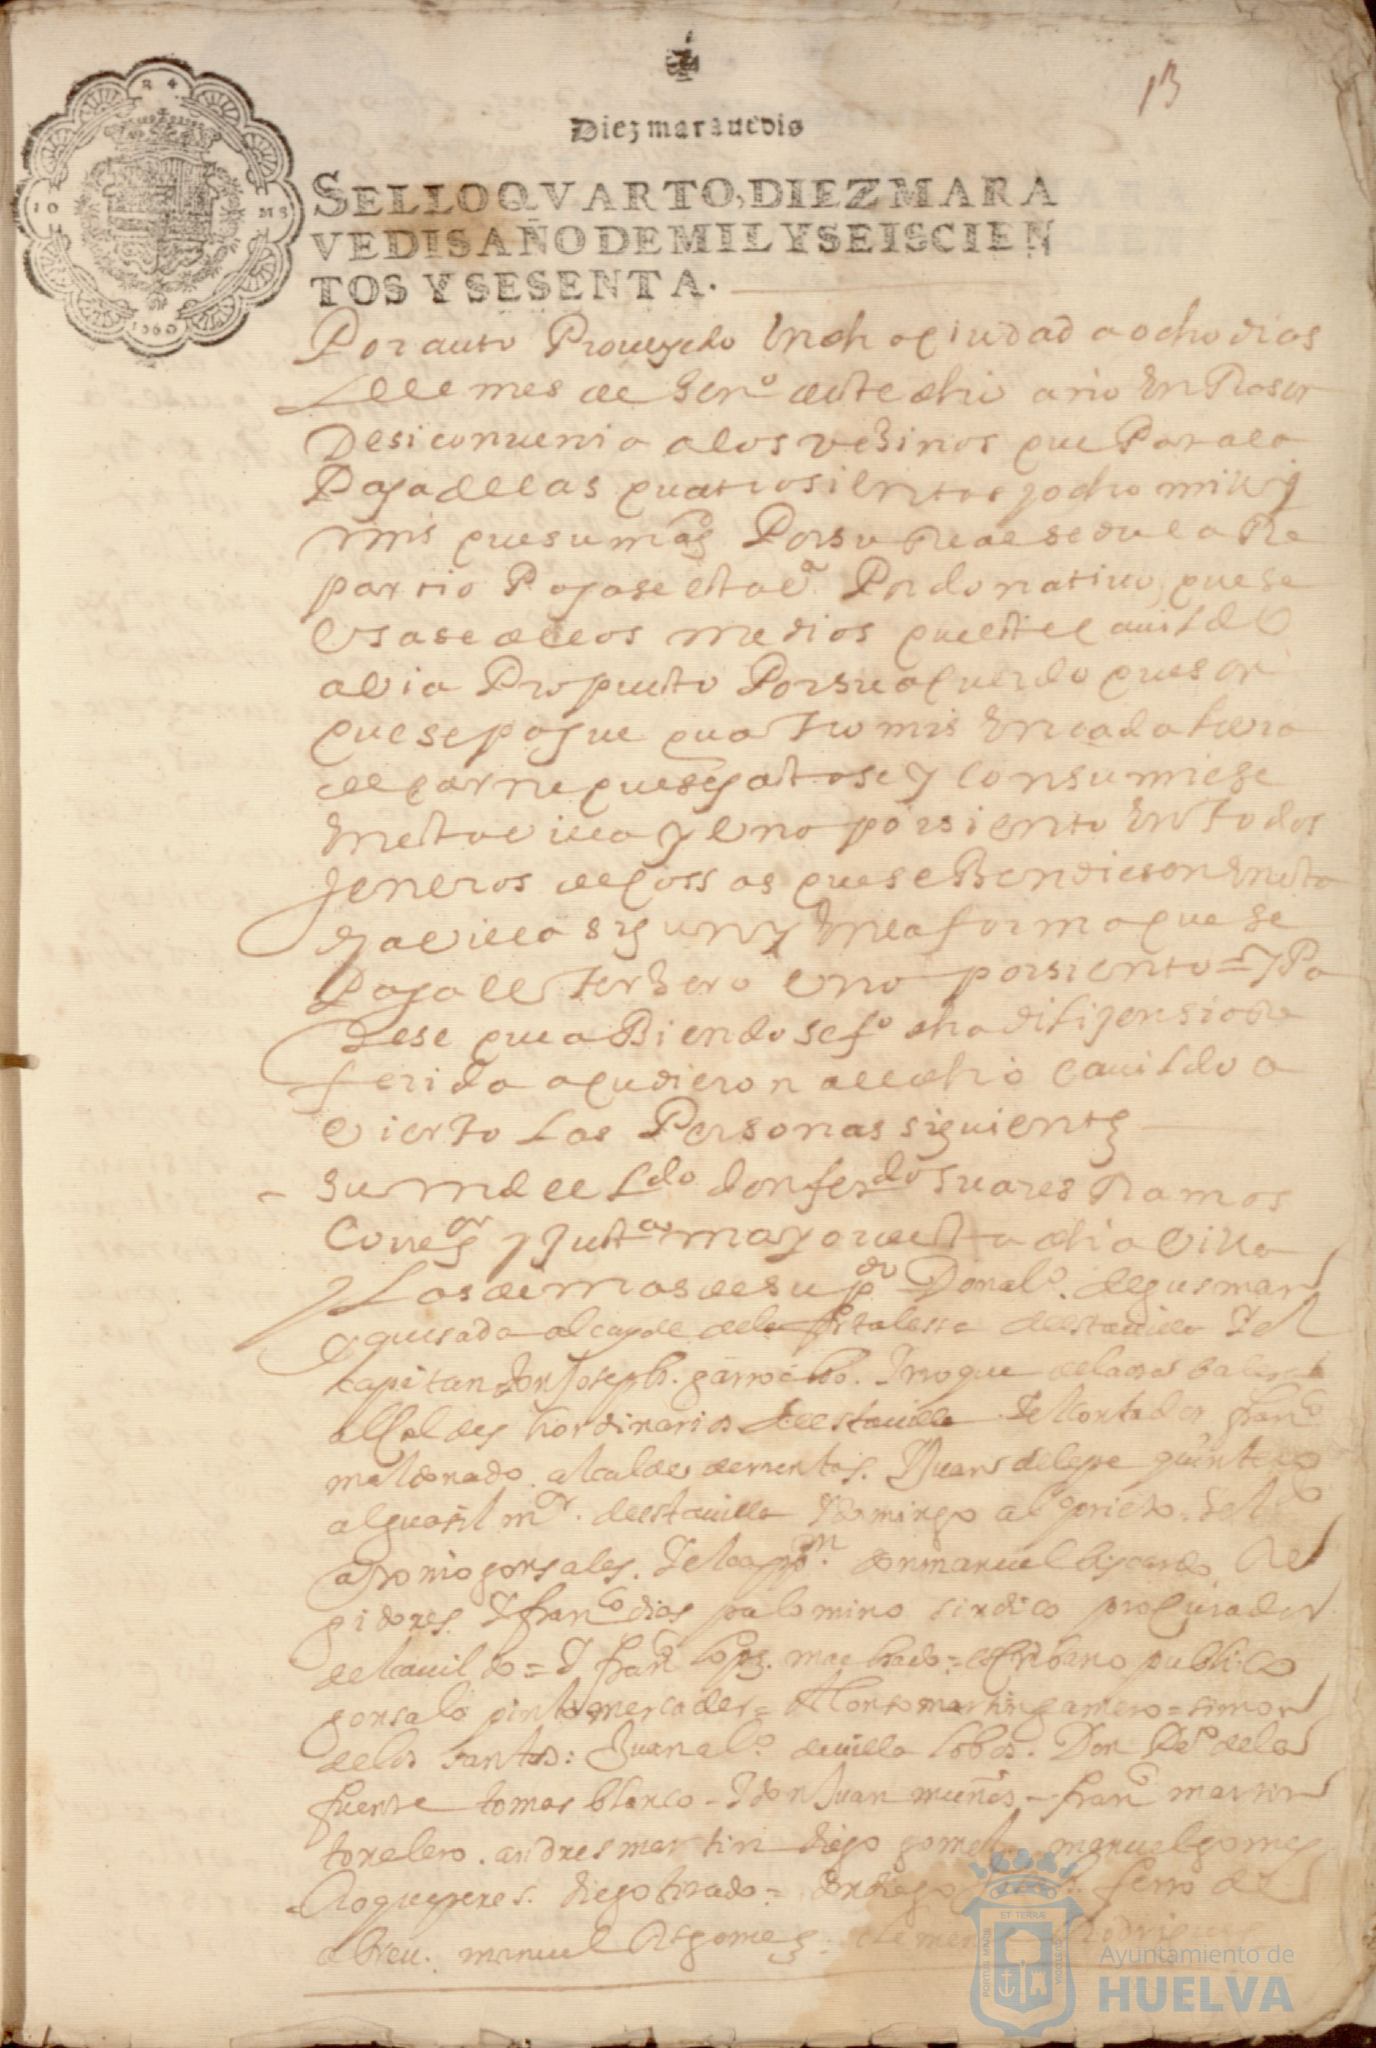 13
Diez maravedis
R 4
10 MS
1660
SELLO QVARTO, DIEZ MARA
VEDIS AÑO DE MIL Y SEISCIEN
TOS Y SESENTA.
Por auto Proueydo En dha çiudad a ocho dias
del mes de Henº deste dho año En Rason
De si conuenia a los veSinos que Para la
Paga de las quatrosientos y ocho mill y
mrs que su magᵈ Por su Real sedula Re
partio Pagase esta vª Por donatiuo, que se
Vsase de los medios que este cauildo
avia Propuesto Por su aquerdo que son
que se pague quatro mrs En cada libra
de carne que se gastase y consumiese
En esta villa y Vno por siento En todos
jeneros de cossas que se Bendiesen En esta
dha villa sigun y En la forma que se
Paga el terSero Vno por siento = y Pa
rese que aBiendose fº dha dilijensia Re
ferida acudieron al dho cauildo a
Vierto las Personas siguientes
Su md el Ldo don ferdo Suares Ramos
Correᵒʳ y Justª mayor desta dha Villa
y Los demas de su pº Don alº. de gusman
quesada alcayde dela fortalessa deesta uilla Y el
capitan Don Joseph. garrocho. Y rroque delaos
alcaldes hordinarios deesta uilla Y el contador franᶜᵒ
maldonado. alcalde de mentas. Y Juan de lepe quintero
alguasil mʳ. deesta uilla Y domingo alº prieto. Y el
antonio gonsales. Y el capᵐ. don manuel biscardo Re
gidores. Y franᶜᵒ dias palomino sindico procurador
del cauildo = Y franᶜᵒ lopes. machado = escribano publico
gonsalo pinto mercader = Alonso martin gamero = simon
de los santos: Juan alº. de uilla lobos. Don Peº de la
fuente tomas blanco - Y don Juan muños - franᶜᵒ martin
tonelero. andres martin diego gomes manuel gomes
Roque peres. diego tirado = don diego ferro de
abreu. manuel Rs gomes: clemente Rodrigues
PORTUS MARIS
ET TERRAE
CUSTODIA
Ayuntamiento de
HUELVA